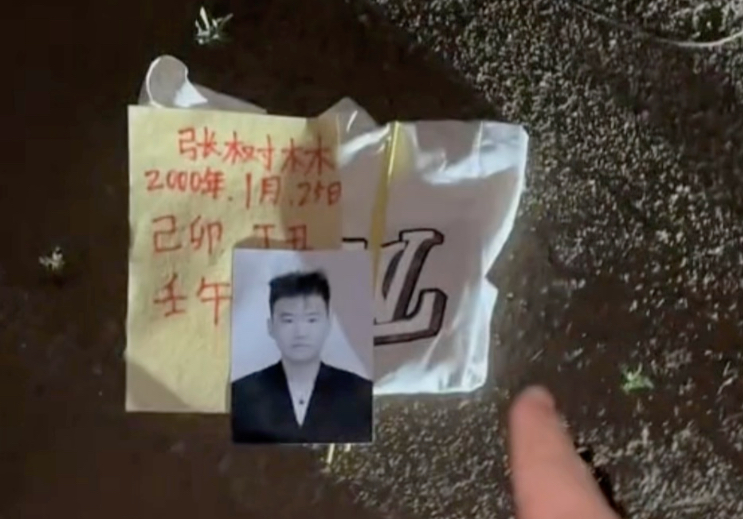 张树林
2000年.1月.25日
己卯 丁丑
壬午
L